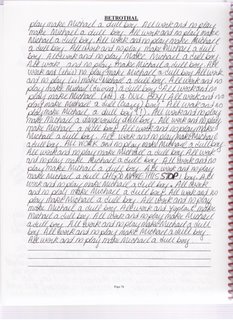 BETROTHAL
play make Michael a dull boy. All work and no play
make Michael a dull boy. All work and no play make
Michael a dull boy. All work and no play make Michael
a dull boy. All work and no play make Michael a dull
boy. All work and no play make Michael a dull boy.
All work and no play make Michael a dull boy. All
work and no play make Michael a dull boy. All work
and no play make Michael a dull boy. All work
and no play make Michael a dull boy. All work and no
play make Michael a dull boy. All work and no
play make Michael a dull (crazy) boy. All work and no
play make Michael a dull boy. All work and no play
make Michael a dangerously dull boy. All work and no play
make Michael a dull boy. All work and no play make
Michael a dull boy. All work and no play make Michael
a dull boy. All work and no play make Michael a dull boy.
All work and no play make Michael a dull boy. All work
and no play make Michael a dull boy. All work and no
play make Michael a dull boy. All work and no play
make Michael a dull STOP boy. All
work and no play make Michael a dull boy. All work
and no play make Michael a dull boy. All work and no
play make Michael a dull boy. All work and no play
make Michael a dull boy. All work and no play make
Michael a dull boy. All work and no play make Michael
a dull boy. All work and no play make Michael a dull
boy. All work and no play make Michael a dull boy.
All work and no play make Michael a dull boy.